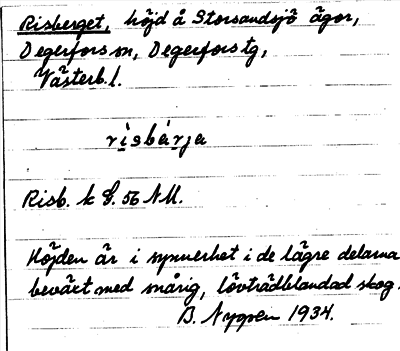 Risberget, höjd å Storsandsjö ägor,
Degerfors sn, Degerfors tg,
Västerb. l.
risbärja
Risb. k G. 56 NM.
Höjden är i synnerhet i de lägre delarna
beväxt med snårig, lövträdblandad skog.
B. Nygren 1934.